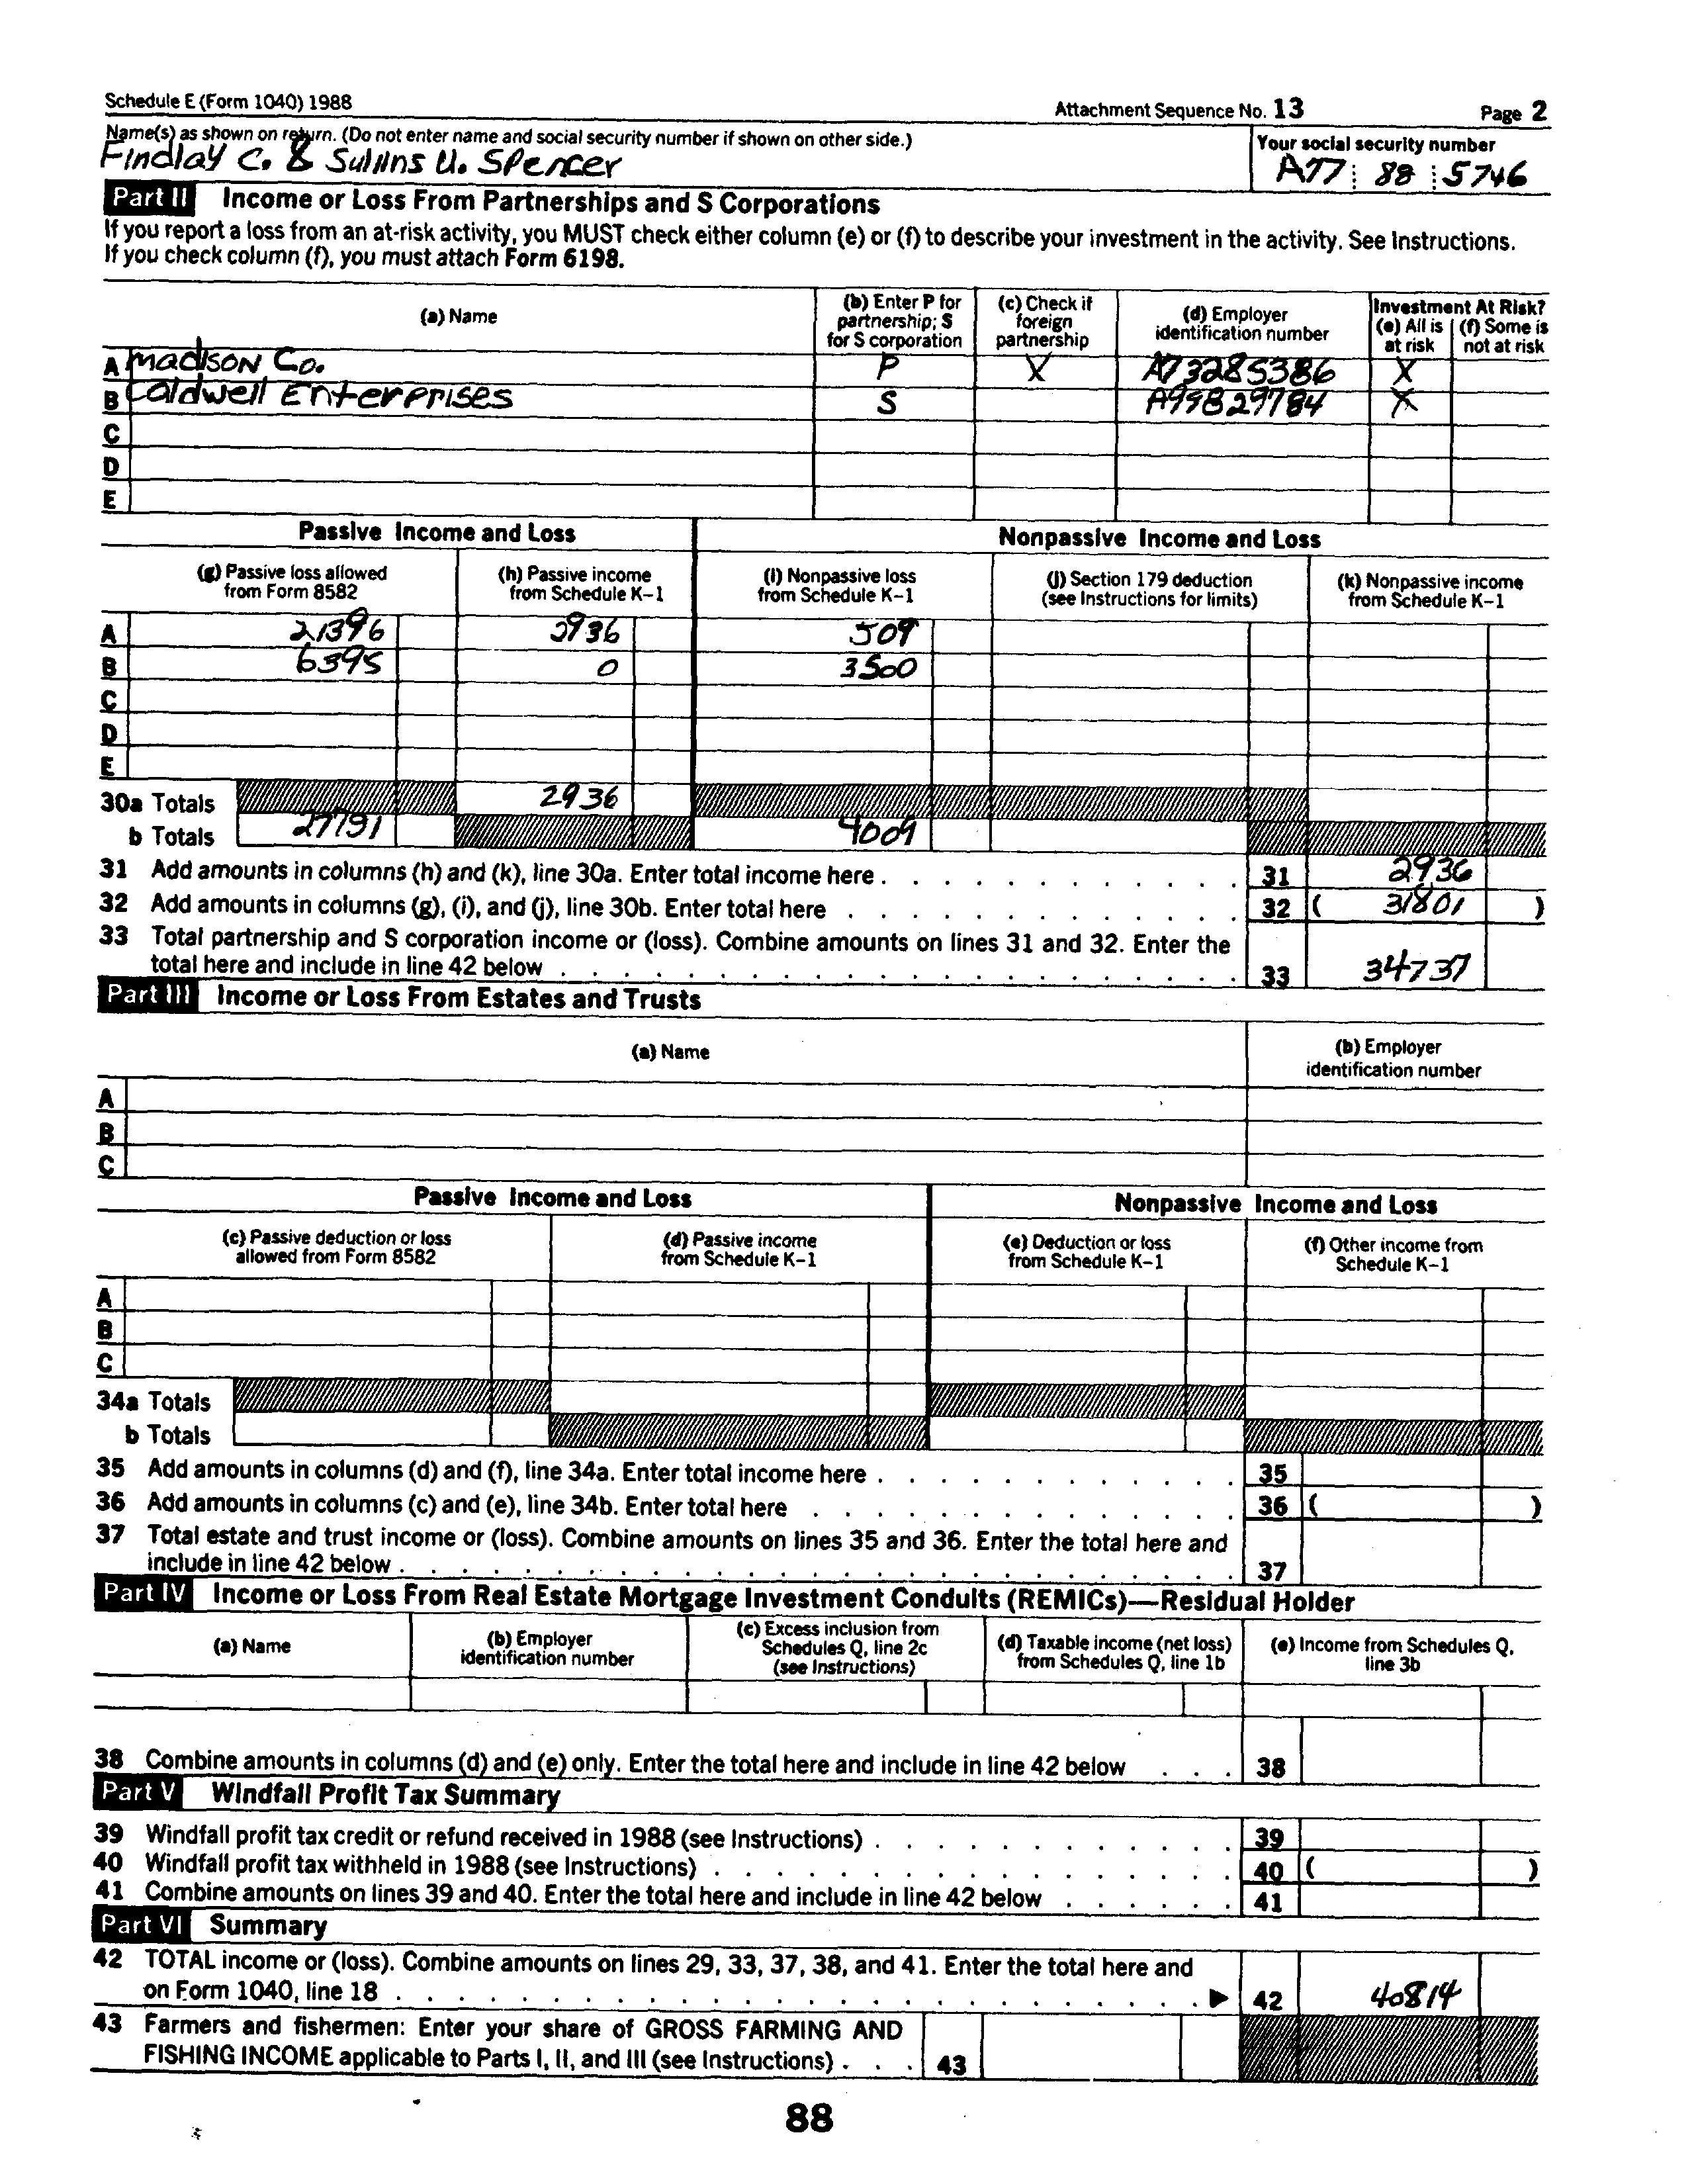 Schedule E (Form 1040) 1988 Attachment Sequence No. 13 Page 2
Name(s) as shown on return. (Do not enter name and social security number if shown on other side.) Your social security number
Findlay C. & Sullins U. Spencer A77 88 5746
Part II Income or Loss From Partnerships and S Corporations
If you report a loss from an at-risk activity, you MUST check either column (e) or (f) to describe your investment in the activity. See Instructions.
If you check column (f), you must attach Form 6198.
(a) Name (b) Enter P for partnership; S for S corporation (c) Check if foreign partnership (d) Employer identification number Investment At Risk? (e) All is at risk (f) Some is not at risk
A Madison Co. P X A73285386 X
B Caldwell Enterprises S A99829784 X
C
D
E
Passive Income and Loss Nonpassive Income and Loss
(g) Passive loss allowed from Form 8582 (h) Passive income from Schedule K-1 (i) Nonpassive loss from Schedule K-1 (j) Section 179 deduction (see Instructions for limits) (k) Nonpassive income from Schedule K-1
A 21396 2936 509
B 6395 0 3500
C
D
E
30a Totals 2936
b Totals 27791 4009
31 Add amounts in columns (h) and (k), line 30a. Enter total income here . 31 2936
32 Add amounts in columns (g), (i), and (j), line 30b. Enter total here . 32 ( 31801 )
33 Total partnership and S corporation income or (loss). Combine amounts on lines 31 and 32. Enter the
total here and include in line 42 below . 33 34737
Part III Income or Loss From Estates and Trusts
(a) Name (b) Employer identification number
A
B
C
Passive Income and Loss Nonpassive Income and Loss
(c) Passive deduction or loss allowed from Form 8582 (d) Passive income from Schedule K-1 (e) Deduction or loss from Schedule K-1 (f) Other income from Schedule K-1
A
B
C
34a Totals
b Totals
35 Add amounts in columns (d) and (f), line 34a. Enter total income here . 35
36 Add amounts in columns (c) and (e), line 34b. Enter total here . 36 ( )
37 Total estate and trust income or (loss). Combine amounts on lines 35 and 36. Enter the total here and
include in line 42 below . 37
Part IV Income or Loss From Real Estate Mortgage Investment Conduits (REMICs)—Residual Holder
(a) Name (b) Employer identification number (c) Excess inclusion from Schedules Q, line 2c (see Instructions) (d) Taxable income (net loss) from Schedules Q, line 1b (e) Income from Schedules Q, line 3b
38 Combine amounts in columns (d) and (e) only. Enter the total here and include in line 42 below . . . 38
Part V Windfall Profit Tax Summary
39 Windfall profit tax credit or refund received in 1988 (see Instructions) . 39
40 Windfall profit tax withheld in 1988 (see Instructions) . 40 ( )
41 Combine amounts on lines 39 and 40. Enter the total here and include in line 42 below . 41
Part VI Summary
42 TOTAL income or (loss). Combine amounts on lines 29, 33, 37, 38, and 41. Enter the total here and
on Form 1040, line 18 . ▶ 42 40814
43 Farmers and fishermen: Enter your share of GROSS FARMING AND
FISHING INCOME applicable to Parts I, II, and III (see Instructions) . . . 43
88